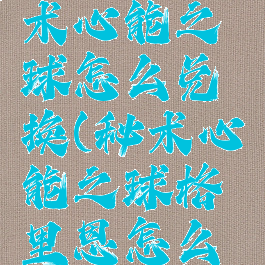 术心能之
球怎么兑
换(秘术心
能之球格
里恩怎么